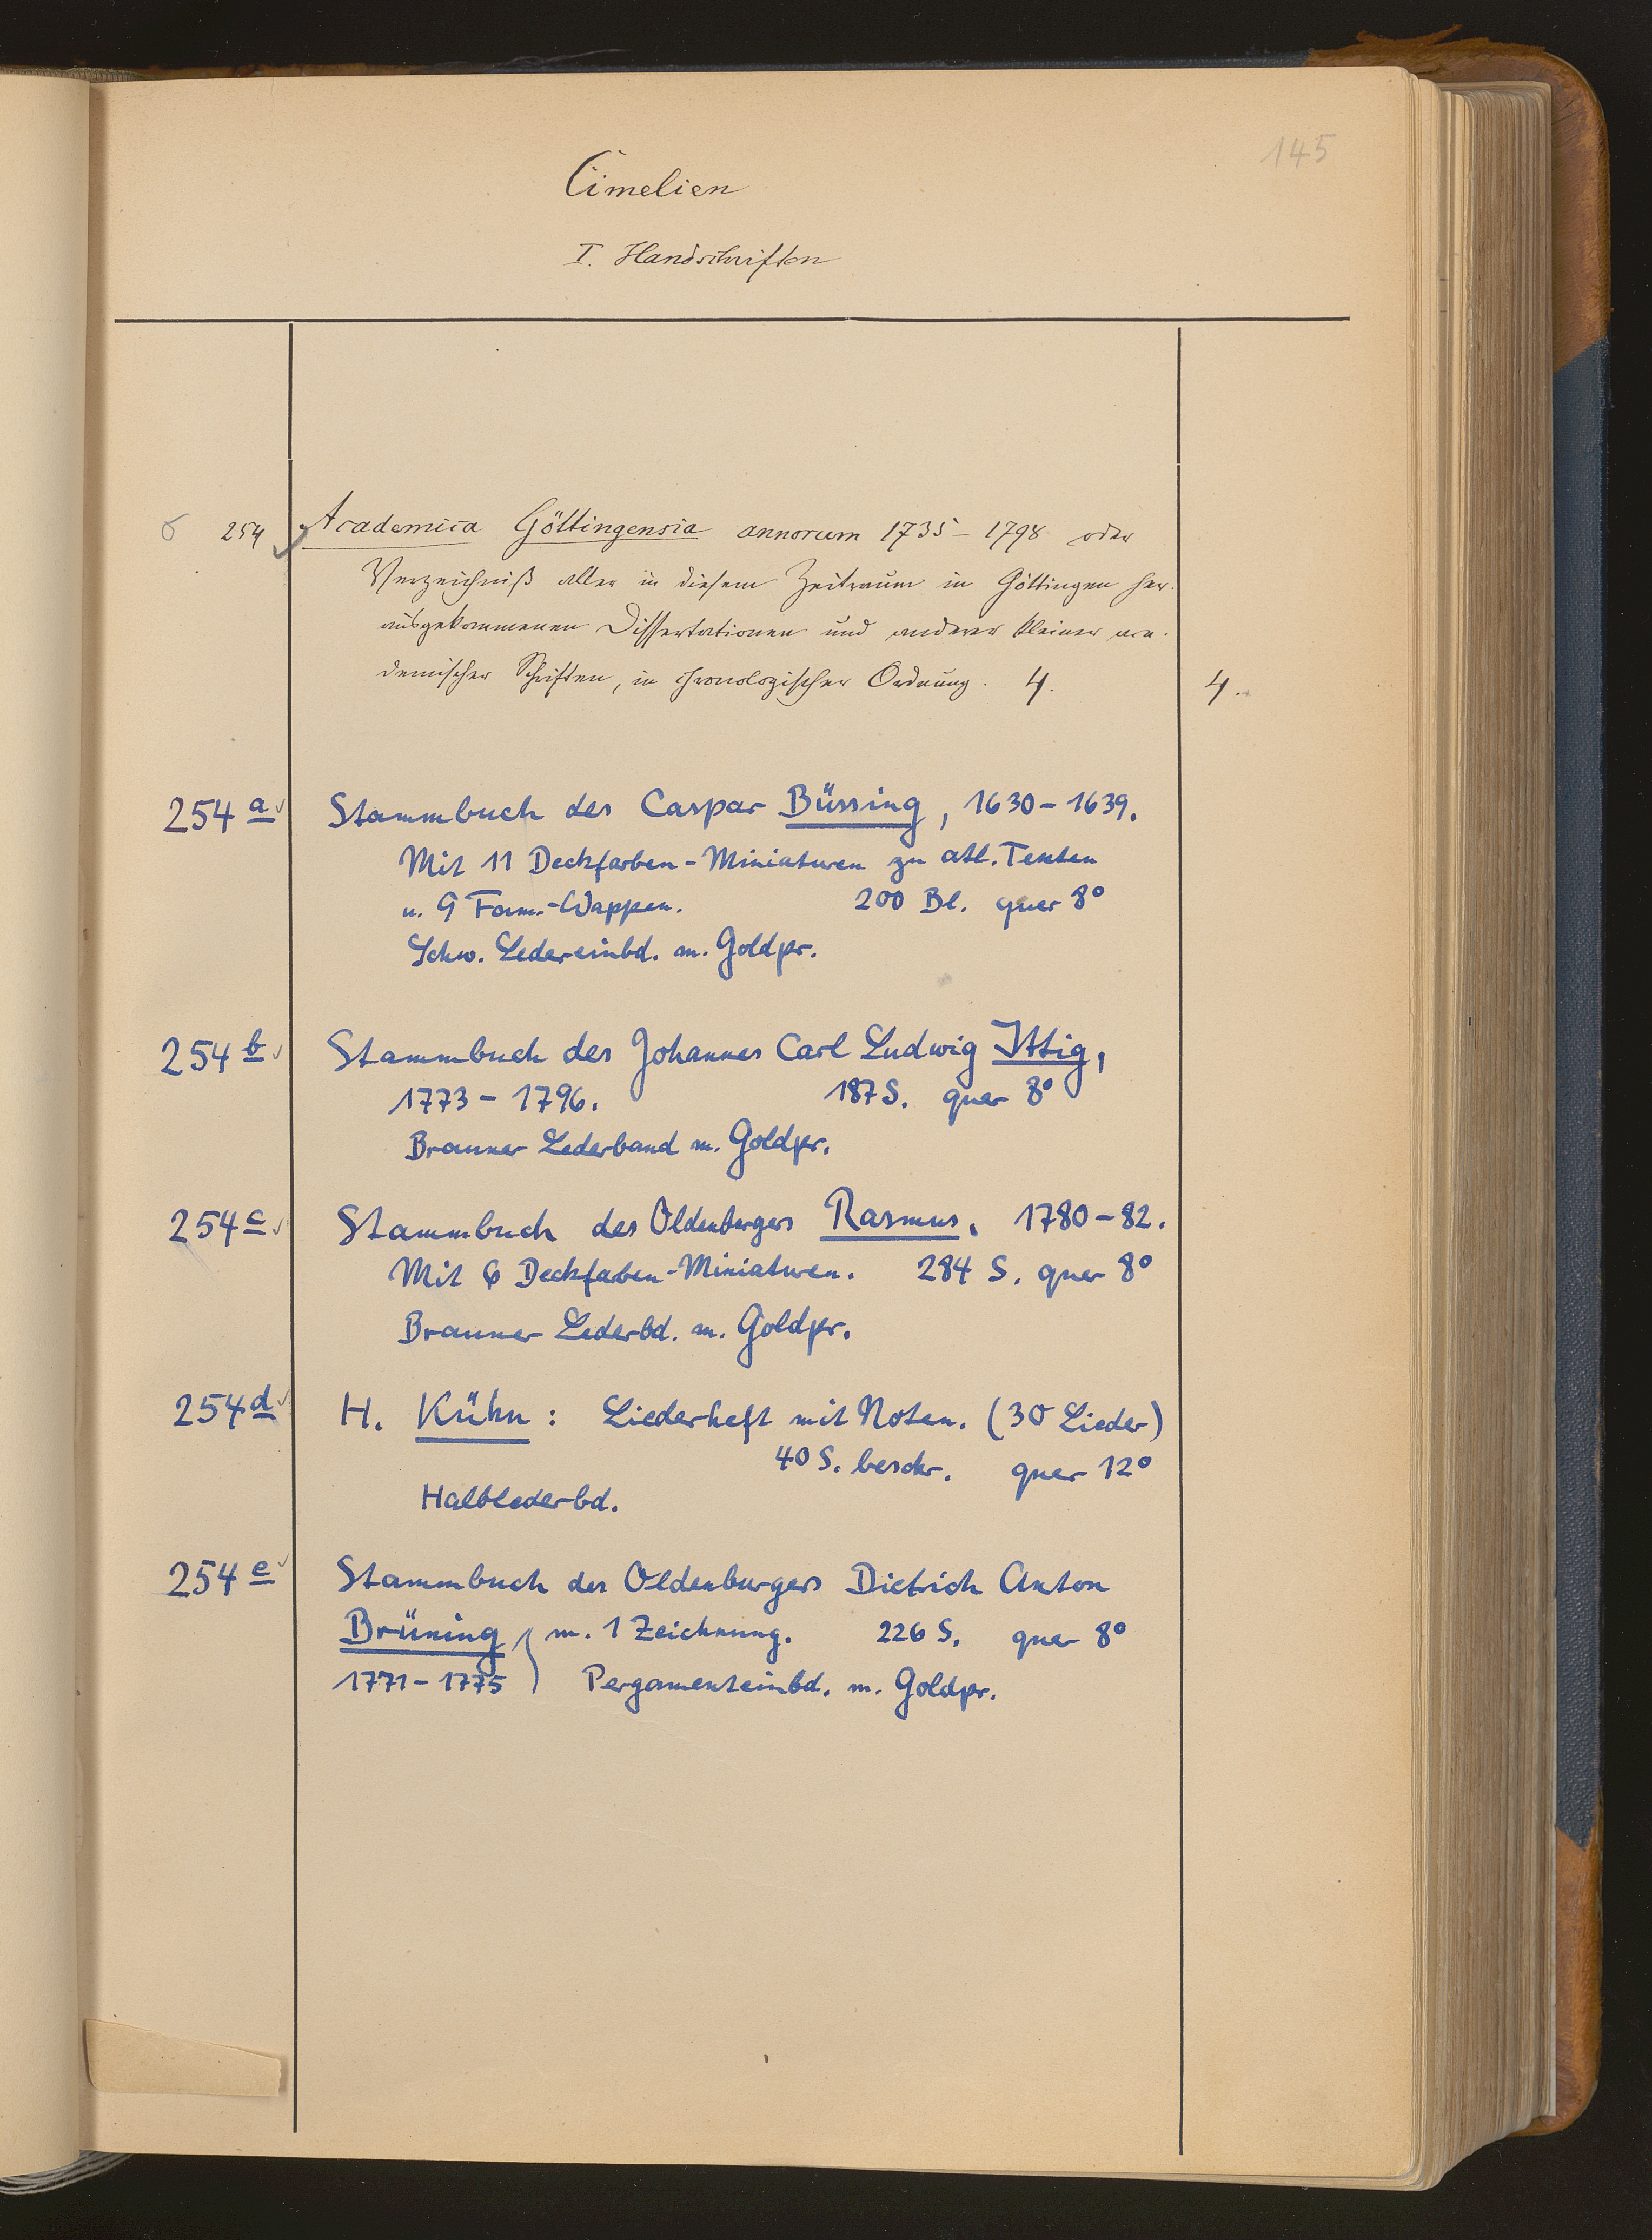 145
Cimelien
I. Handschriften
254 Academica Göttingensia annorum 1735–1798 oder
Verzeichniß aller in diesem Zeitraum in Göttingen her-
ausgekommenen Dissertationen und anderer kleiner aca-
demischer Schriften, in chronologischer Ordnung. 4. 4.
254 a Stammbuch des Caspar Büssing, 1630–1639.
Mit 11 Deckfarben-Miniaturen zu atl. Texten
u. 9 Fam.-Wappen. 200 Bl. quer 8°
Schw. Ledereinbd. m. Goldpr.
254 b Stammbuch des Johannes Carl Ludwig Ittig,
1773–1796. 187 S. quer 8°
Brauner Lederband m. Goldpr.
254 c Stammbuch des Oldenburgers Rasmus, 1780–82.
Mit 6 Deckfaben-Miniaturen. 284 S. quer 8°
Brauner Lederbd. m. Goldpr.
254 d H. Kühn: Liederheft mit Noten. (30 Lieder)
40 S. beschr. quer 12°
Halblederbd.
254 e Stammbuch des Oldenburgers Dietrich Anton
Brüning, m. 1 Zeichnung. 226 S. quer 8°
1771–1775 ) Pergamenteinbd. m. Goldpr.